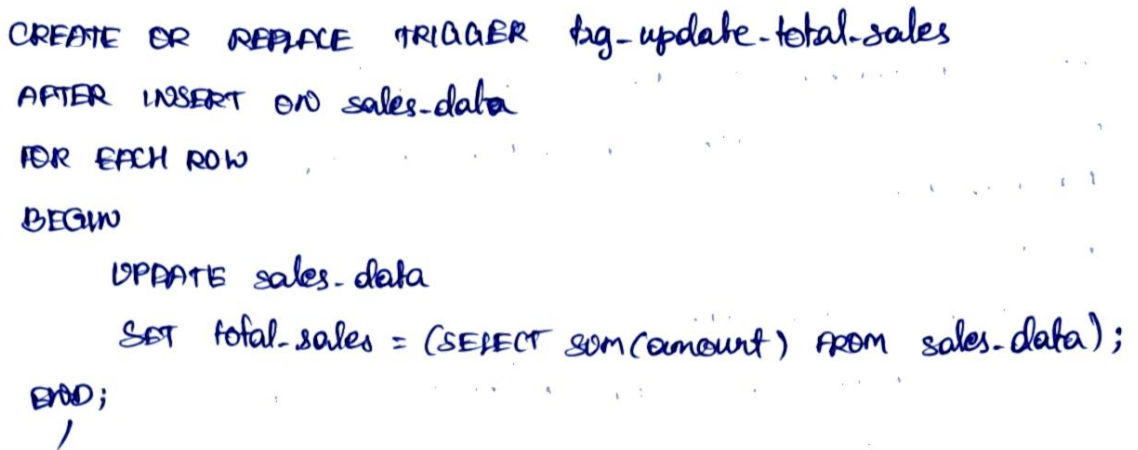 CREATE OR REPLACE TRIGGER trg-update-total-sales
AFTER INSERT ON sales-data
FOR EACH ROW
BEGIN
UPDATE sales-data
SET total-sales = (SELECT sum(amount) FROM sales-data);
END;
/